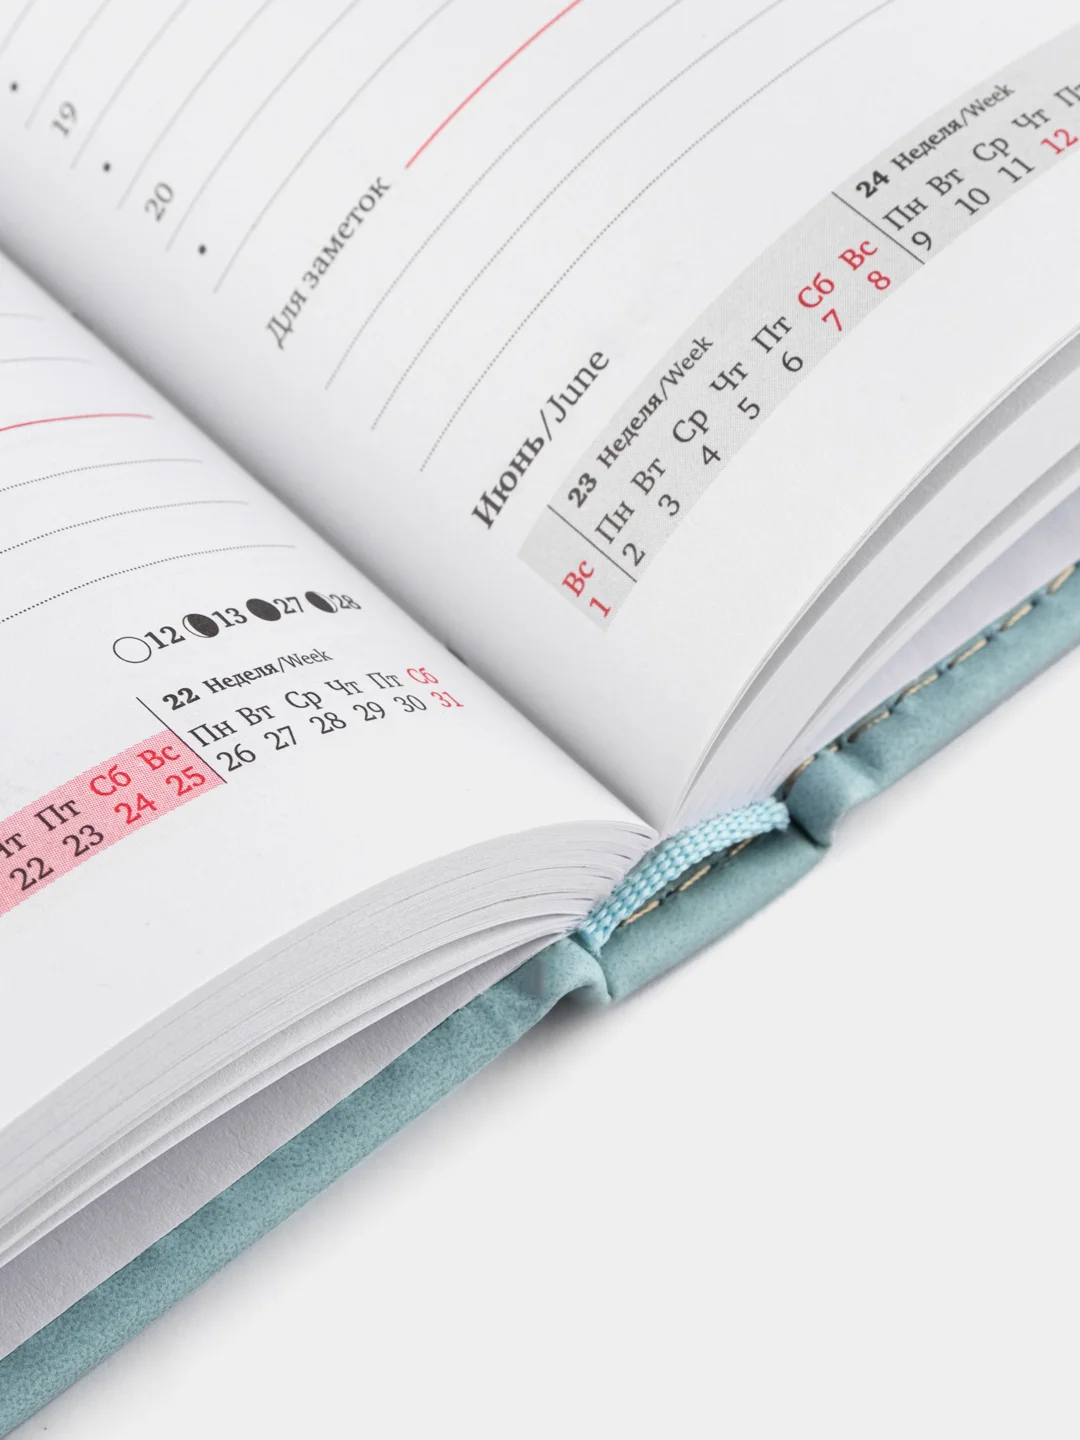 12 13 27 28
22 Неделя/Week
Чт Пт Сб Вс Пн Вт Ср Чт Пт Сб
22 23 24 25 26 27 28 29 30 31
19
20
Для заметок
Июнь/June
23 Неделя/Week
24 Неделя/Week
Вс Пн Вт Ср Чт Пт Сб Вс Пн Вт Ср Чт Пт
1 2 3 4 5 6 7 8 9 10 11 12